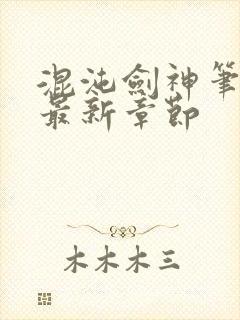 混沌劍神筆
最新章節
木木木三